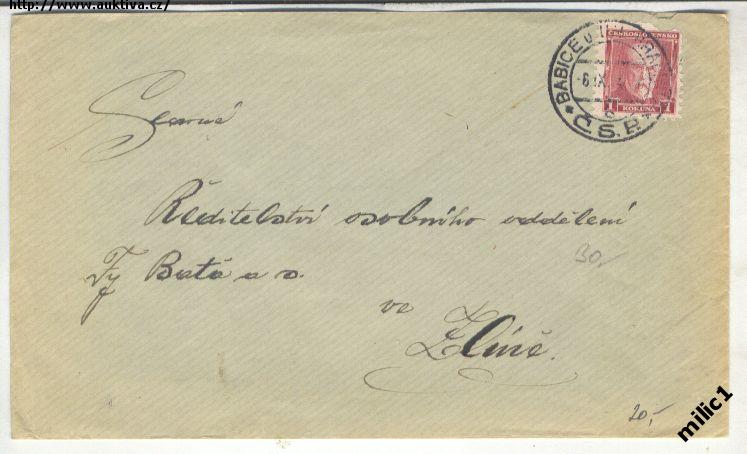 http://www.auktiva.cz/
BABICE u
ČESKOSLOVENSKO
6.IX
1 KORUNA 1
Č.S.R.
Slavné
Ředitelství osobního oddělení
Fy Baťa a s.
30,-
ve
Zlíně.
20,-
milic1